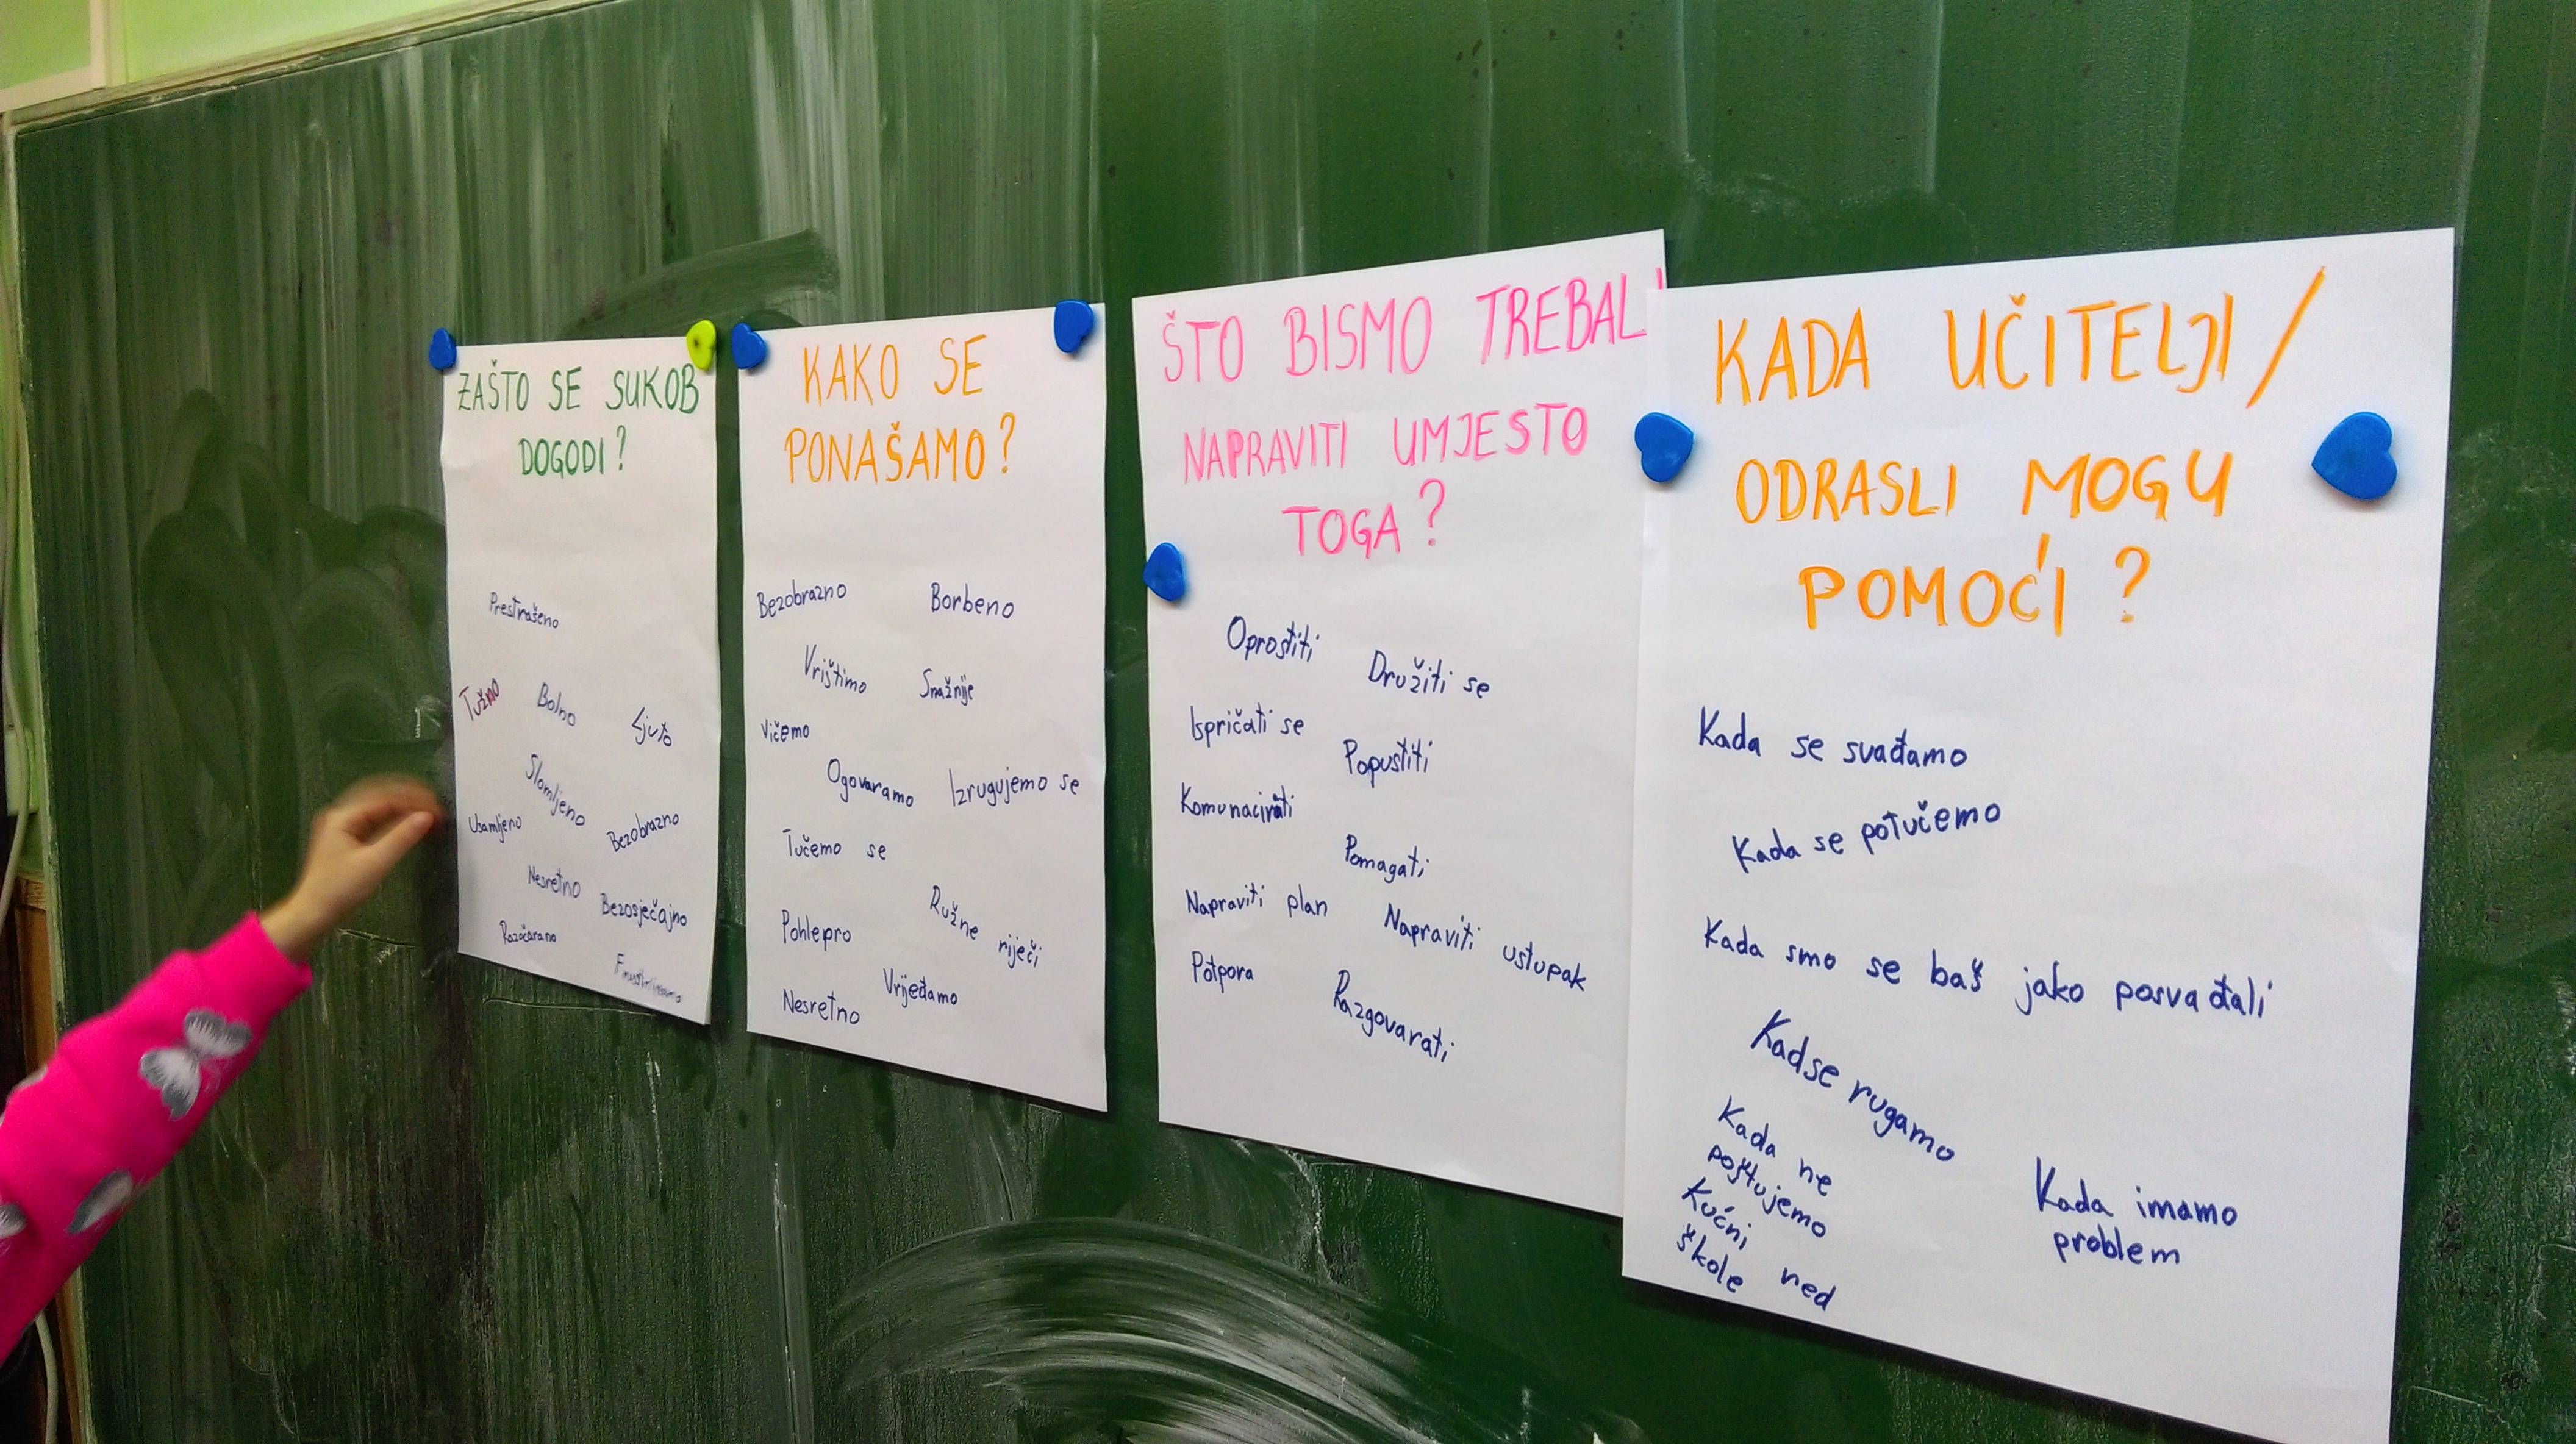 ZAŠTO SE SUKOB
DOGODI?
Prestrašeno
Tužno
Bolno
Ljuto
Slomljeno
Usamljeno
Bezobrazno
Nesretno
Bezosječajno
Razočarano
KAKO SE
PONAŠAMO?
Bezobrazno
Borbeno
Vrištimo
Snažnije
Vičemo
Ogovaramo
Izrugujemo se
Tučemo se
Ružne riječi
Pohlepro
Vrijeđamo
Nesretno
ŠTO BISMO TREBALI
NAPRAVITI UMJESTO
TOGA?
Oprostiti
Družiti se
Ispričati se
Popustiti
Komunacirati
Pomagati
Napraviti plan
Napraviti ustupak
Potpora
Razgovarati
KADA UČITELJI/
ODRASLI MOGU
POMOĆI?
Kada se svađamo
Kada se potučemo
Kada smo se baš jako posvađali
Kad se rugamo
Kada ne
poštujemo
Kućni red
škole
Kada imamo
problem